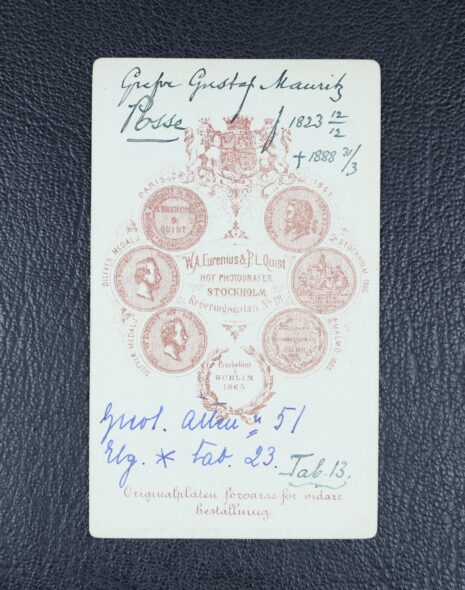 Grefve Gustaf Mauritz
Posse f. 1823 12/12
† 1888 31/3
PARIS 1867
EURENIUS
&
QUIST
SILFVER MEDALJ
STOCKHOLM 1866
W.A. Eurenius & P.L. Quist
HOF-PHOTOGRAFER
STOCKHOLM
Regeringsgatan No 18
SILFVER MEDALJ
MALMÖ 1865
Prisbelönt
i
DUBLIN
1865
51
Elg. * tab. 23.
Tab. 13.
Originalplåten förvaras för vidare
beställning.